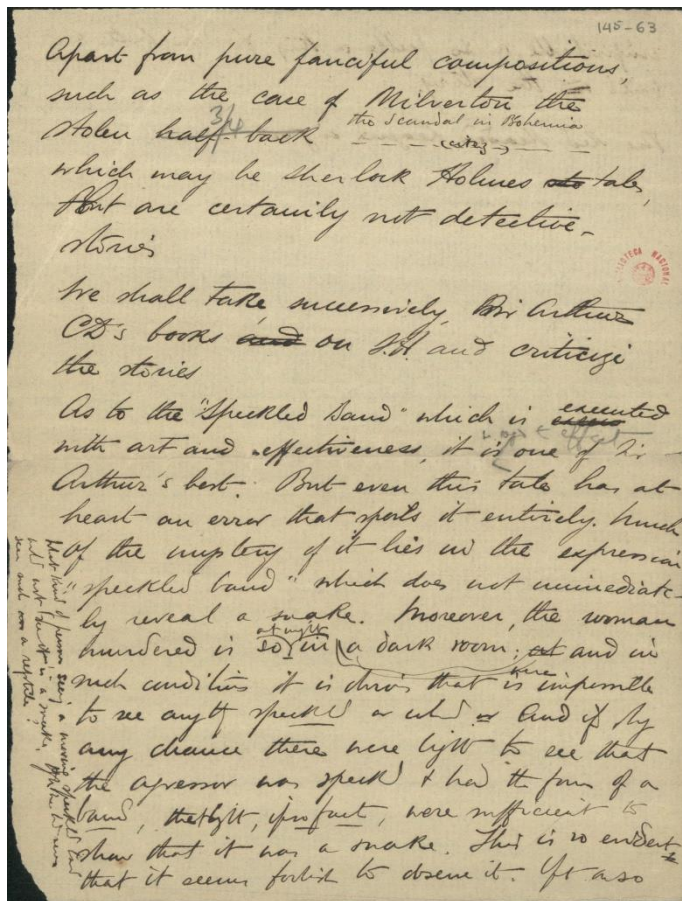 145-63
Apart from pure fanciful compositions,
such as the case of Milverton the
the Scandal in Bohemia
stolen half-back 3/4
(citez)
which may be Sherlock Holmes sto tales,
but are certainly not detective-
stories
We shall take successively Sir Arthur
CD's books and on S.H. and criticize
the stories
As to the "Speckled Band" which is executed
with art and effectiveness, it is one of Sir
effect
Arthur's best. But even this tale has at
heart an error that spoils it entirely. Much
of the mystery of it lies in the expression
"speckled band" which does not immediate-
ly reveal a snake. Moreover, the woman
at night
murdered is so in a dark room; at and in
such conditions it is obvious that it is impossible
here
to see anyth speckled or And if by
any chance there were light to see that
the agressor was speckd & had th form of a
band, the light, ipso facto, were sufficient to
show that it was a snake. This is so evident
that it seems foolish to observe it. Yet also
What kind of person seeing a moving speckled band
wd not see in a snake,
seen such a reptile?
BIBLIOTECA NACIONAL